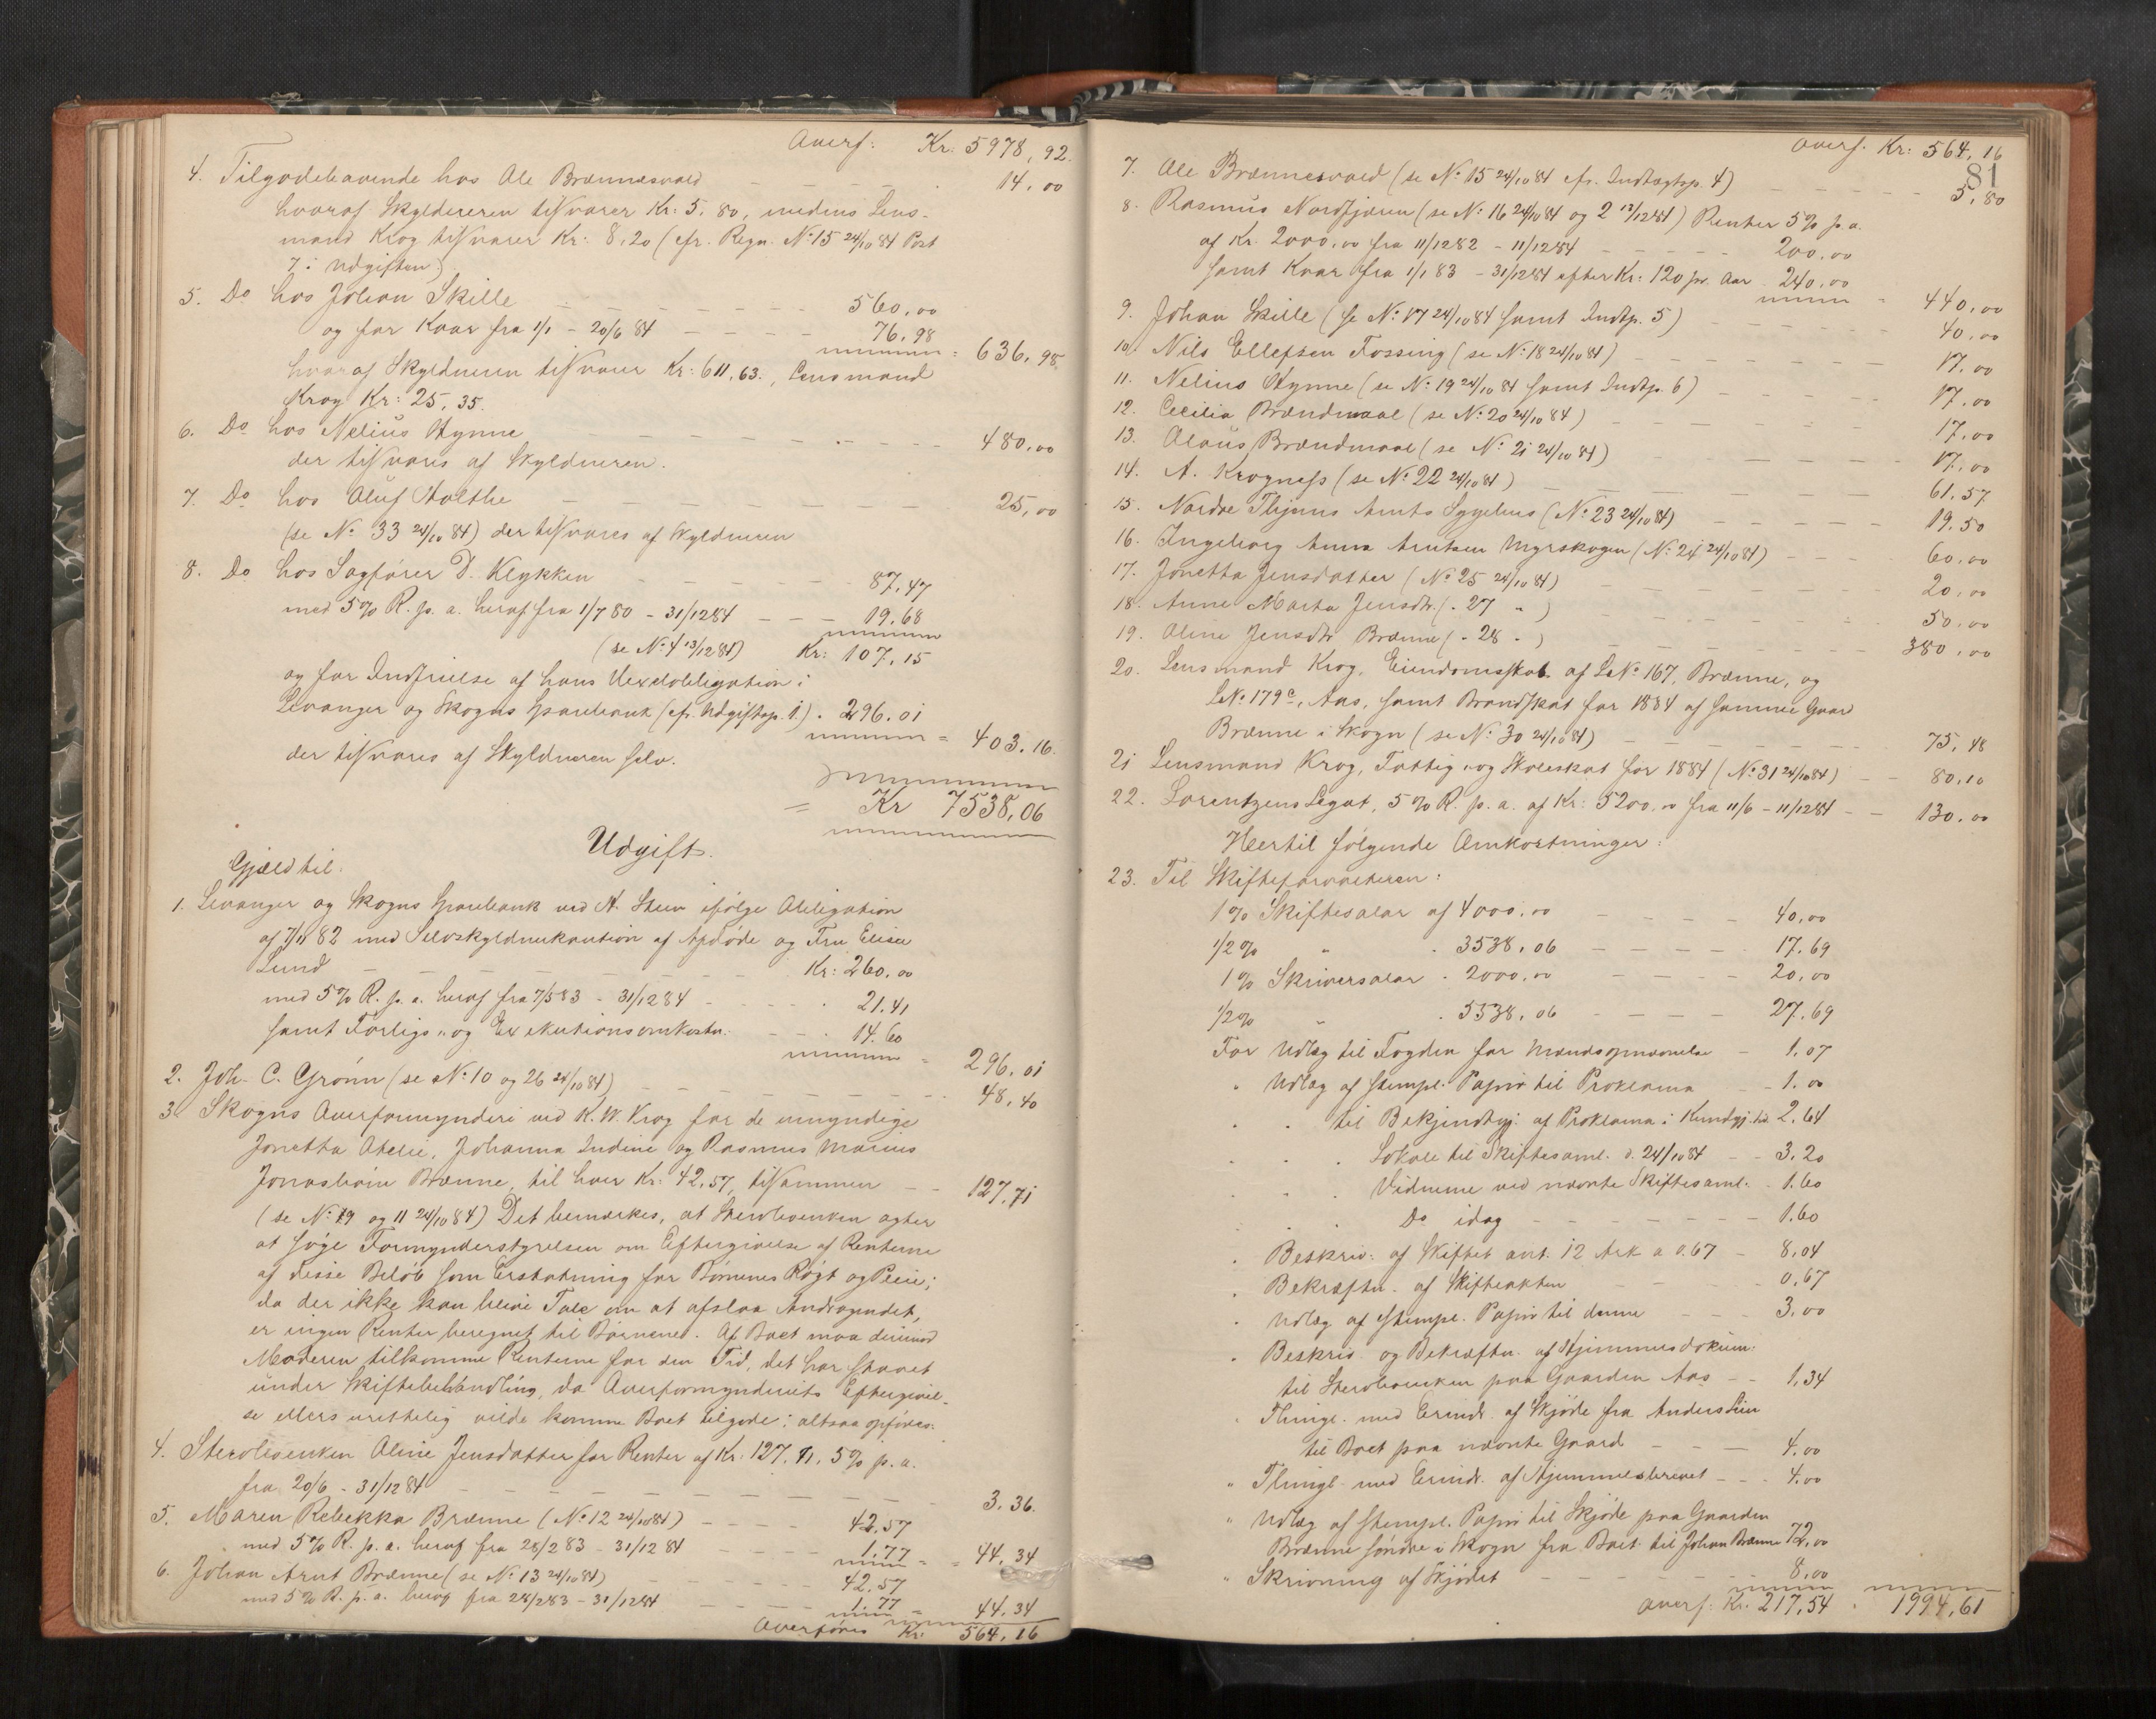 Overf: Kr: 5978,92.
4. Tilgodehavende hos Ole Brænnesvald 14,00
hvoraf Skyldneren tilsvarer Kr: 5,80, medens Lens-
mand Krog tilsvarer Kr: 8,20 (cfr. Regn. No 15 24/10 84 Post
7 i Udgiften)
5. Do hos Johan Skille 560,00
og for Kaar fra 1/1 - 20/6 84 76,98 = 636,98
hvoraf Skyldneren tilsvarer Kr: 611,63, Lensmand
Krog Kr: 25,35.
6. Do hos Nelius Hynne 480,00
der tilsvares af Skyldneren.
7. Do hos Oluf Holthe 25,00
(se No 33 24/10 84) der tilsvares af Skyldneren
8. Do hos Sagfører D. Klykken 87,47
med 5% R. p. a. heraf fra 1/7 80 - 31/12 84 19,68
(se No 4 13/12 84) Kr: 107,15
og for Indfrielse af hans Vexelobligation i
Levanger og Skogns Sparebank (cfr. Udgiftsp. 1.) 296.01 = 403,16.
der tilsvares af Skyldneren selv.
= Kr 7538,06
Udgift.
Gjæld til.
1. Levanger og Skogns Sparebank ved A. Steen ifølge Obligation
af 7/11 82 med Selvskyldnerkaution af Afdøde og Fru Elisa
Lund Kr: 260.00
med 5% R. p. a. heraf fra 7/5 83 - 31/12 84 21.41
samt Forligs- og Exekutionsomkostn. 14.60 = 296.01
2. Joh. C. Grønn (se No 10 og 26 24/10 84) 48,40
3. Skogns Overformynderi ved K. W. Krog for de umyndige
Jonetta Otelie, Johanna Indine og Rasmus Marius
Jonasbørn Brænne, til hver Kr: 42,57, tilsammen 127,71
(se No 9 og 11 24/10 84) Det bemærkes, at Stervboenken agter
at søge Formynderstyrelsen om Eftergivelse af Renterne
af disse Beløb som Erstatning for Børnenes Røgt og Pleie;
da der ikke kan blive Tale om at afslaa Andragendet,
er ingen Renter beregnet til Børnene. Af Boet maa derimod
Moderen tilkomme Renterne for den Tid, det har staaet
under Skiftebehandling, da Overformynderiets Eftergivel-
se ellers urettelig vilde komme Boet tilgode; altsaa opføres:
4. Stervboenken Oline Jensdatter for Renter af Kr. 127.71, 5% p. a.
fra 20/6 - 31/12 84 3.36.
5. Maren Rebekka Brænne (No 12 24/10 84) 42,57
med 5% R. p. a. heraf fra 28/2 83 - 31/12 84 1.77 = 44,34
6. Johan Arnt Brænne (se No 13 24/10 84) 42.57
med 5% R. p. a. heraf fra 28/2 83 - 31/12 84 1.77 = 44.34
Overføres Kr: 564,16
Overf. Kr: 564,16
81
7. Ole Brænnesvald (se No 15 24/10 84 cfr. Indtægtsp. 4) 5,80
8. Rasmus Nordfjæren (se No 16 24/10 84 og 2 13/12 84) Renter 5% p. a.
af Kr. 2000,00 fra 11/12 82 - 11/12 84 200.00
samt Kaar fra 1/1 83 - 31/12 84 efter Kr: 120 pr. Aar 240.00 = 440,00
9. Johan Skille (se No 17 24/10 84 samt Indtp. 5) 40,00
10. Nils Ellefsen Fossing (se No 18 24/10 84) 17,00
11. Nelius Hynne (se No 19 24/10 84 samt Indtp. 6) 17,00
12. Cecilia Brændmoal (se No 20 24/10 84) 17,00
13. Olaus Brændmoal (se No 21 24/10 84) 17,00
14. A. Krogness (se No 22 24/10 84) 61,57
15. Nordre Thjems Amts Sygehus (No 23 24/10 84) 19.50
16. Ingeborg Anna Arntsen Myrskogen (No 24 24/10 84) 60,00
17. Jonetta Jensdatter (No 25 24/10 84) 20,00
18. Anne Marta Jensdtr. ( " 27 " ) 50,00
19. Oline Jensdtr Brænne ( " 28 " ) 380,00
20. Lensmand Krog, Eiendomsskat af LNo 167, Brænne, og
LNo 179c, Aas, samt Brandskat for 1884 af samme Gaar
Brænne i Skogn (se No 30 24/10 84) 75,48
21 Lensmand Krog, Fattig- og Skoleskat for 1884 (No 31 24/10 84) 80,10
22. Lorentzens Legat, 5% R. p. a. af Kr: 5200,00 fra 11/6 - 11/12 84 130,00
Hertil følgende Omkostninger:
23. Til Skifteforvalteren:
1% Skiftesalær af 4000,00 40,00
1/2% " " 3538,06 17.69
1% Skriversalær " 2000,00 20,00
1/2% " " 5538,06 27,69
For Udlæg til Fogden for Mændsopnævnelse 1,07
" Udlæg af stempl. Papir til Proklama 1.00
" " til Bekjendtgj. af Proklama i Kundgj.tid. 2,64
" " " Lokale til Skiftesaml. d. 24/10 84 3,20
" " " Vidnerne ved nævnte Skiftesaml. 1.60
" " " Do idag 1.60
" Beskriv. af Skiftet ant. 12 Ark a 0.67 8,04
" Bekræftn. af Skifteakten 0,67
" Udlæg af stempl. Papir til denne 3,00
" Beskriv. og Bekræftn. af Hjemmelsdokum.
til Stervboenken paa Gaarden Aas 1,34
" Thingl. med Erindr. af Skjøde fra Anders Lein
til Boet paa nævnte Gaard 4,00
" Thingl. med Erindr. af Hjemmelsbrevet 4.00
" Udlæg af stempl. Papir til Skjøde paa Gaarden
Brænne søndre i Skogn fra Boet til Johan Brænne 72,00
" Skrivning af Skjødet 8,00
Overf: Kr. 217,54 " 1994,61